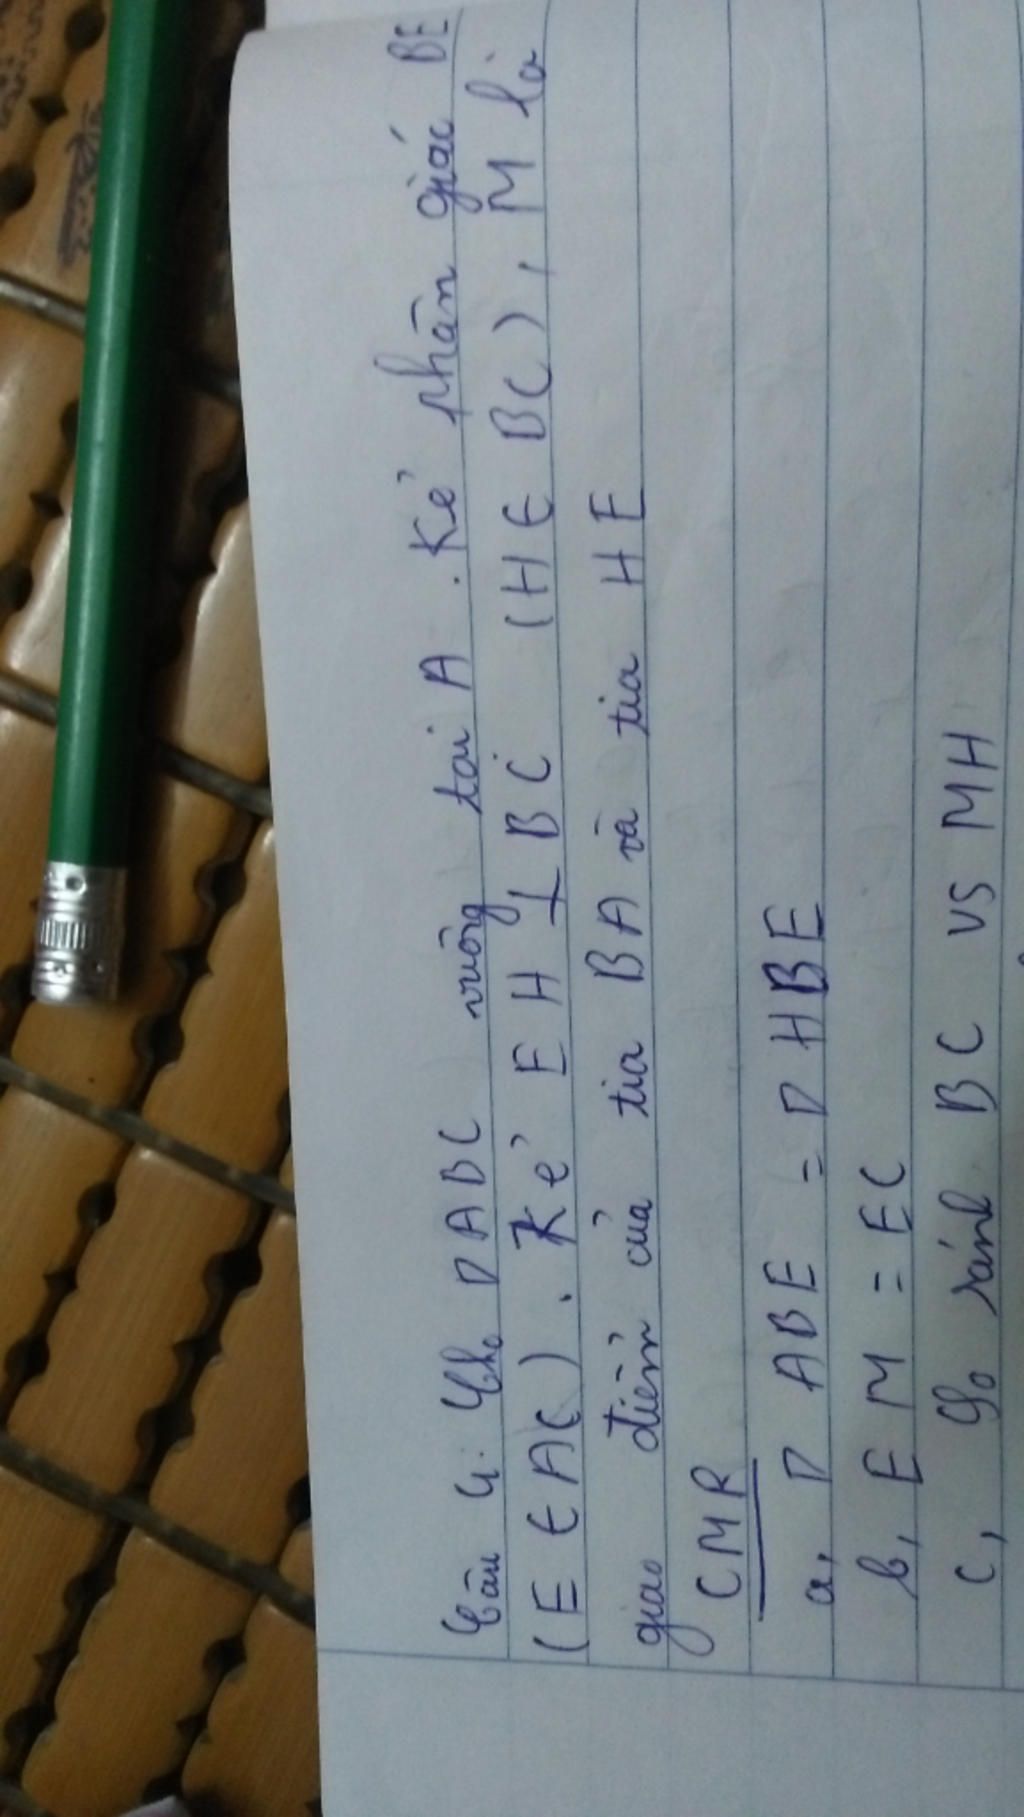 Câu 4: Cho ΔABC vuông tại A. Kẻ phân giác BE
(E ∈ AC). Kẻ EH ⊥ BC (H ∈ BC), M là
giao điểm của tia BA và tia HE
CMR
a, Δ ABE = Δ HBE
b, EM = EC
c, So sánh BC vs MH